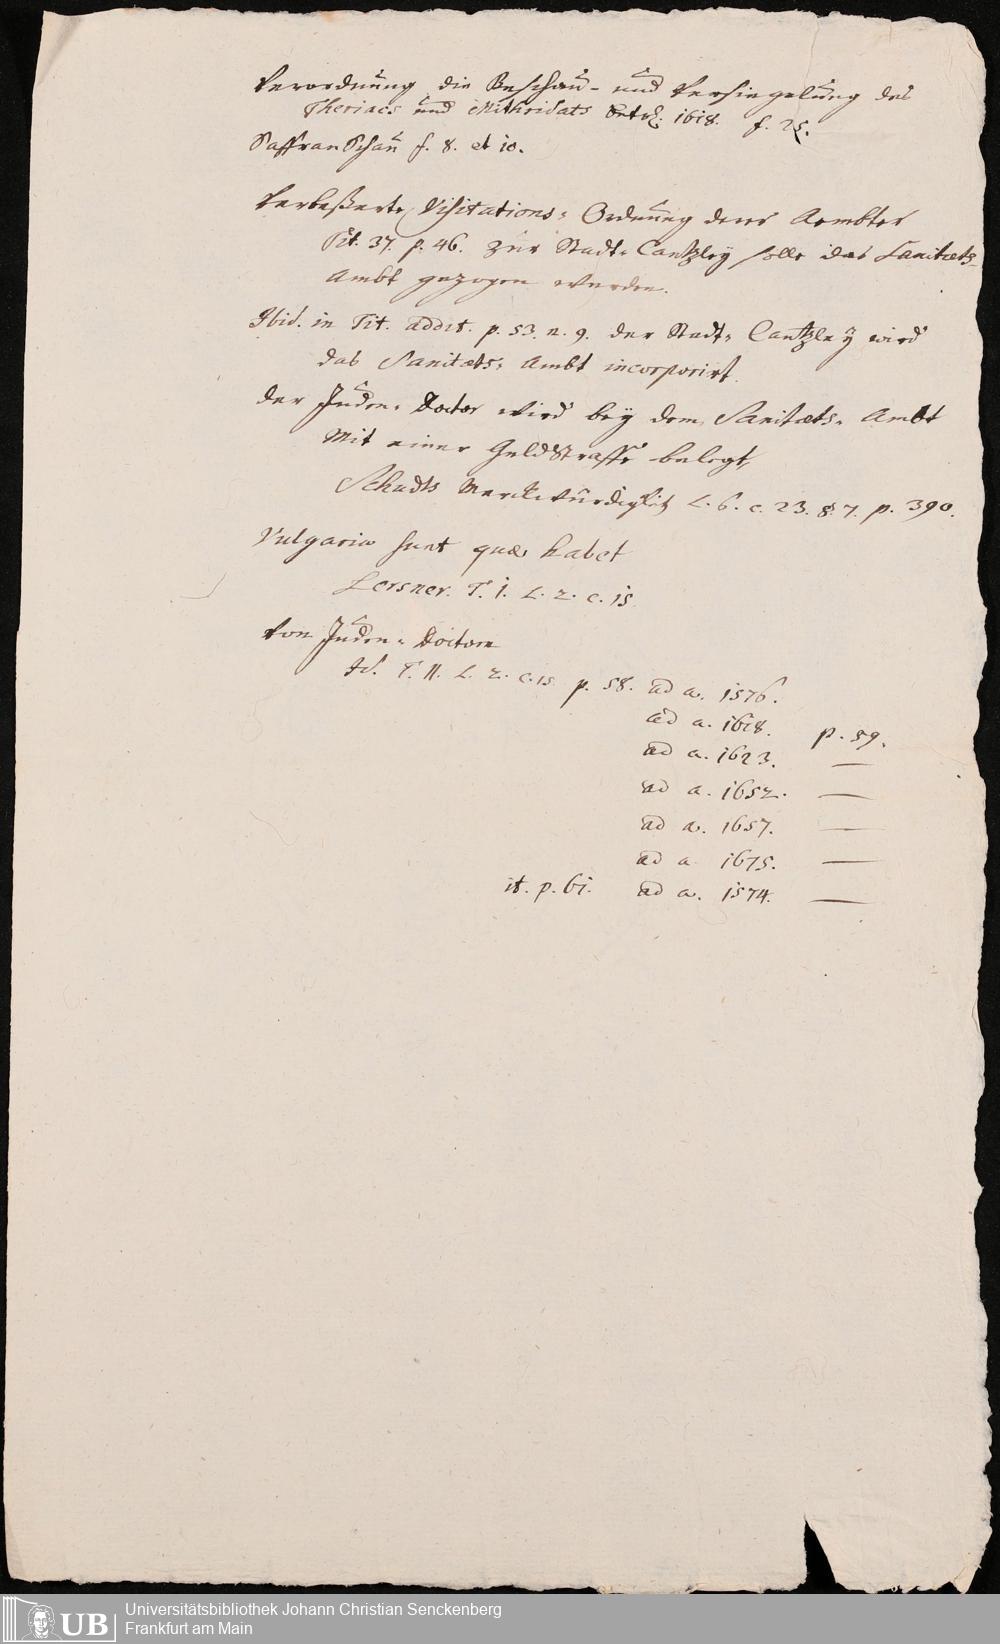 Verordnung die Beschau- und Versiegelung des
Theriacs und Mithridats betr. 1618. f. 25.
Saffran Schau f. 8. et 10.
Verbeßerte Visitations- Ordnung derer Aembter
Tit. 37. p. 46. zur Stadt-Cantzley solle das Sanitæts-
Ambt gezogen werden.
Ibid. in Tit. addit. p. 53. n. 9. der Stadt- Cantzley wird
das Sanitæts- Ambt incorporirt.
der Juden- Doctor wird bey dem Sanitæts- Ambt
Mit einer Geldstraffe belegt,
Schudts Merckwürdigkeit L. 6. c. 23. §. 7. p. 390.
Vulgaria sunt quæ habet
Lersner. T. I. L. 2. c. 15
Von Juden- Doctorn
Id. T. II. L. 2. c. 15. p. 58. ad a. 1576.
ad a. 1618. p. 59.
ad a. 1623. —
ad a. 1652. —
ad a. 1657. —
ad a 1675. —
it. p. 61. ad a. 1574. —
UB
Universitätsbibliothek Johann Christian Senckenberg
Frankfurt am Main